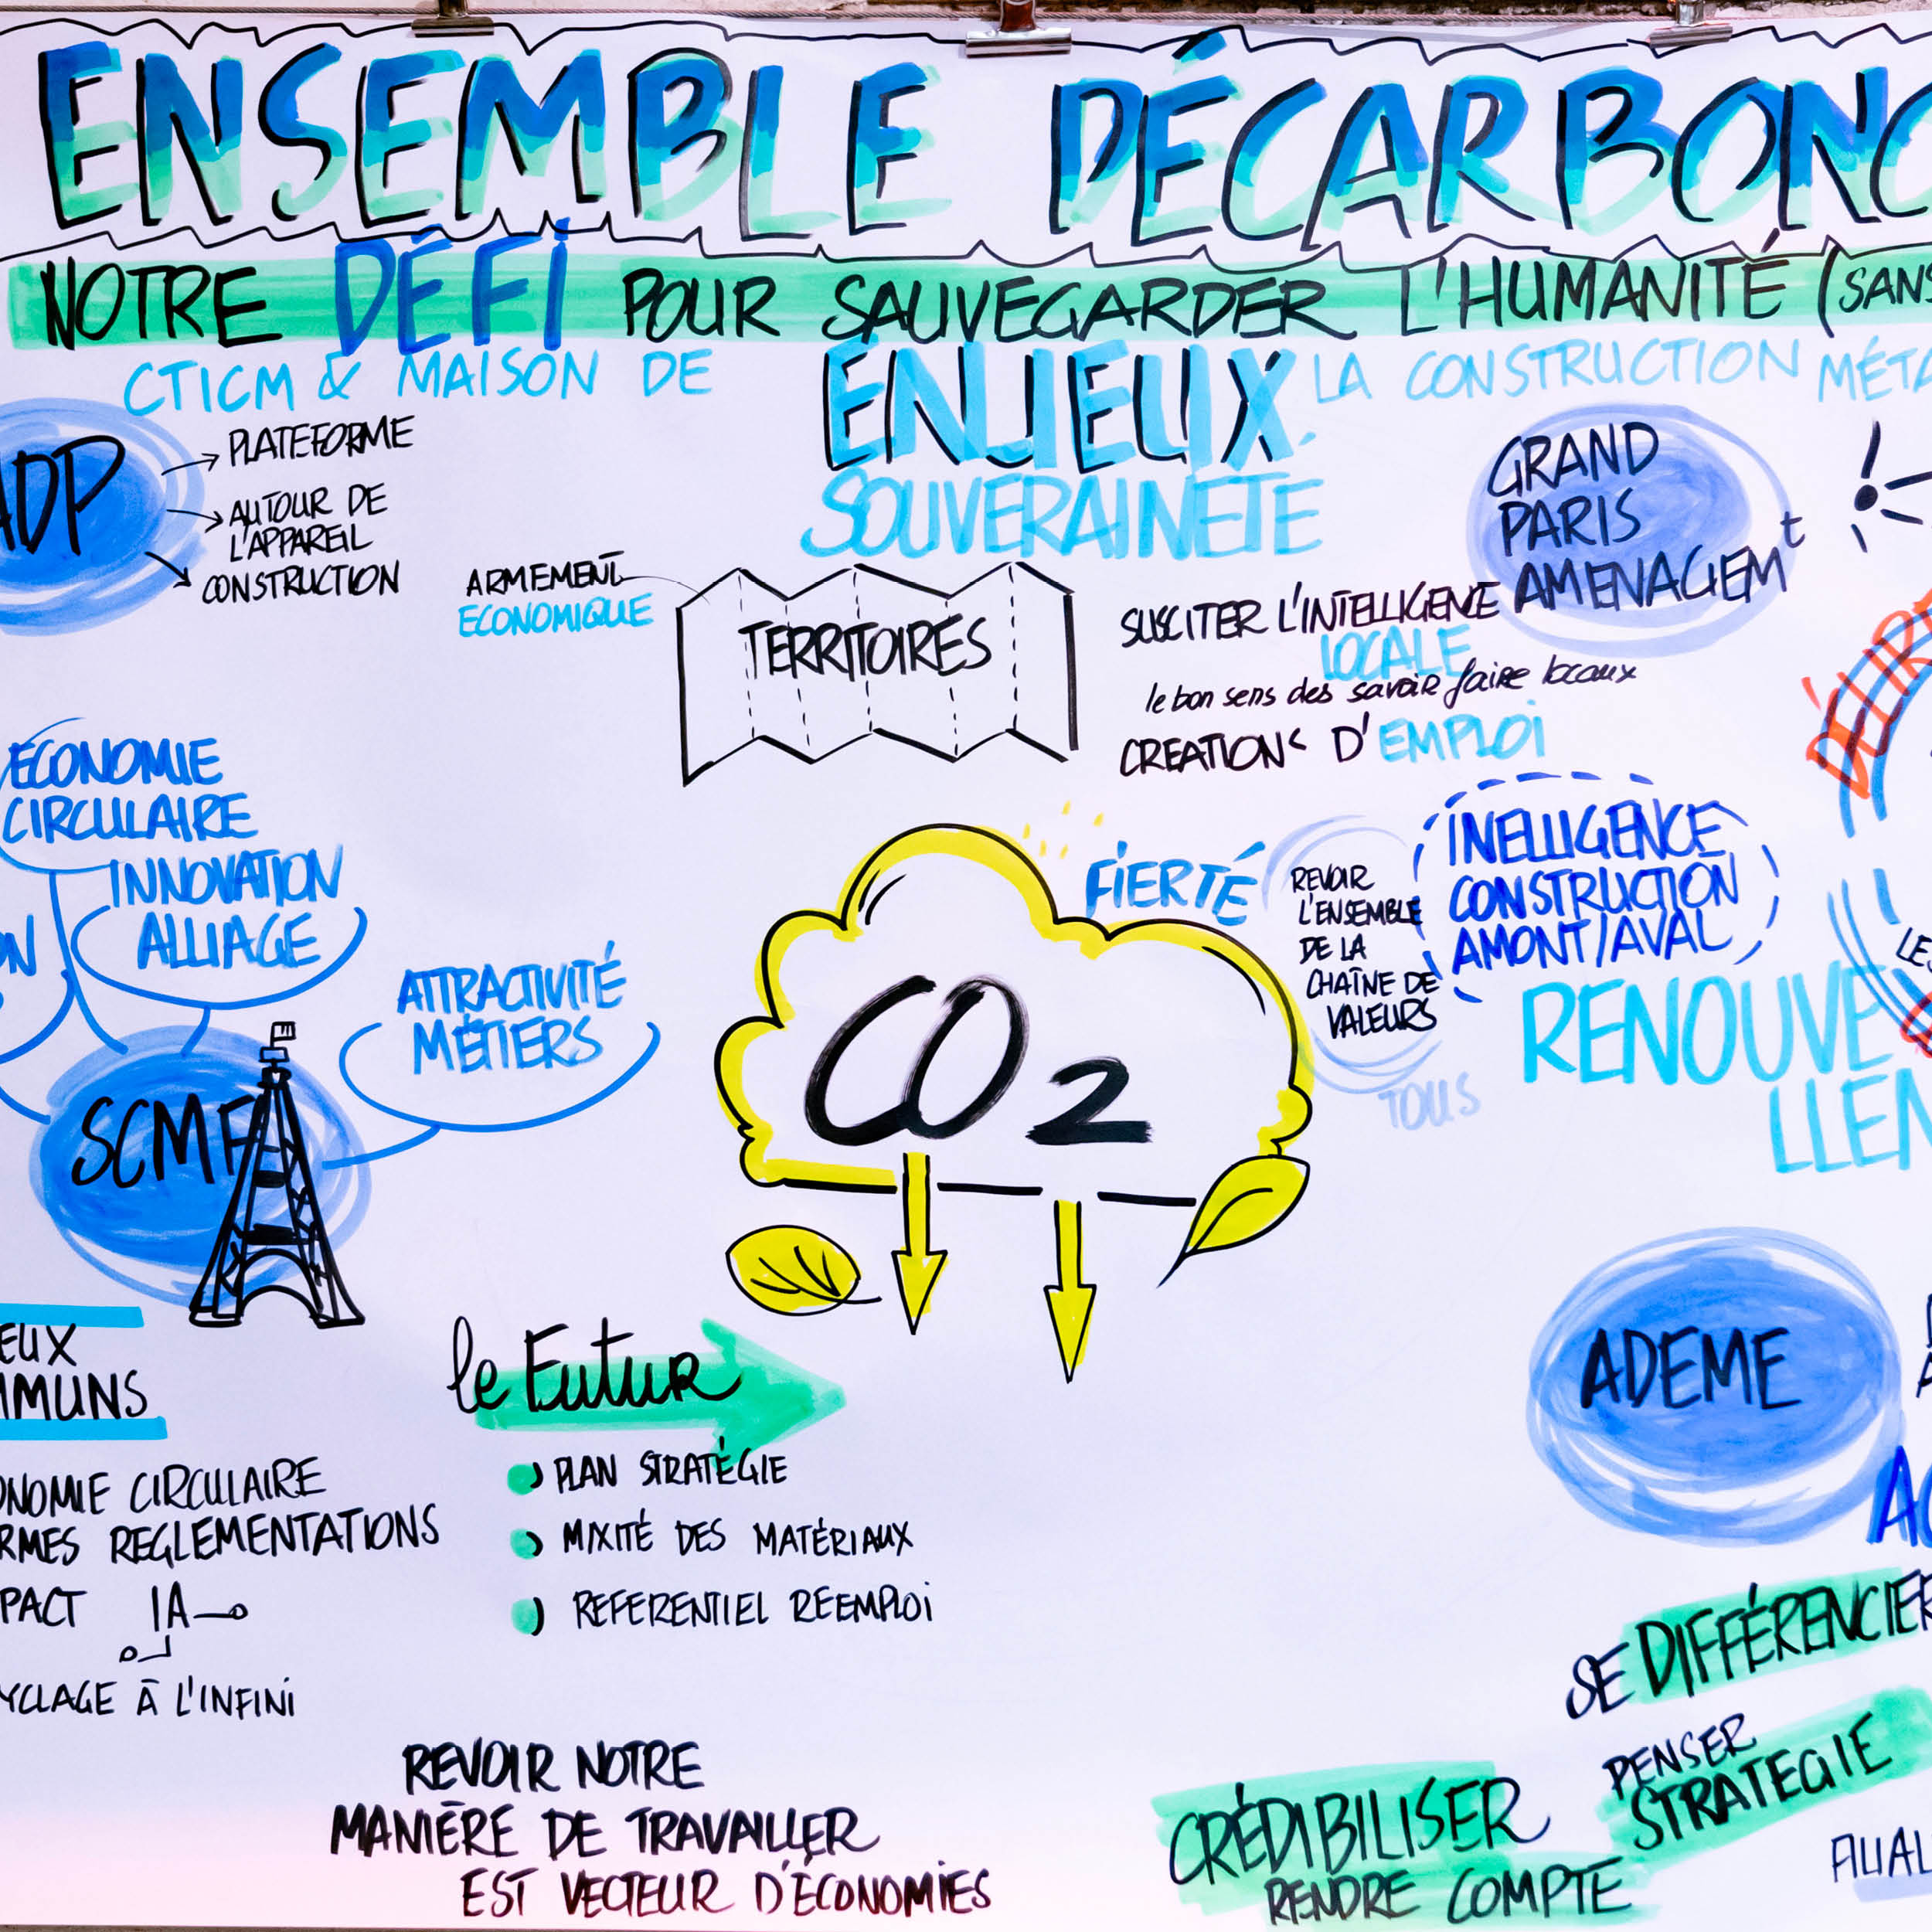 ENSEMBLE DÉCARBON
NOTRE DÉFI POUR SAUVEGARDER L'HUMANITÉ (SANS
CTICM & MAISON DE LA CONSTRUCTION MÉTA
ENJEUX
SOUVERAINETÉ
ADP
PLATEFORME
AUTOUR DE
L'APPAREIL
CONSTRUCTION
ARMEMENT
ECONOMIQUE
TERRITOIRES
GRAND
PARIS
AMENAGEMt
SUSCITER L'INTELLIGENCE
LOCALE
le bon sens des savoir faire locaux
CREATIONS D'EMPLOI
ECONOMIE
CIRCULAIRE
INNOVATION
ALLIAGE
ON
ATTRACTIVITÉ
MÉTIERS
SCMF
CO2
FIERTÉ
REVOIR
L'ENSEMBLE
DE LA
CHAÎNE DE
VALEURS
TOUS
INELLIGENCE
CONSTRUCTION
AMONT/AVAL
RENOUVE
LLEM
LES
EUX
MMUNS
ONOMIE CIRCULAIRE
RMES REGLEMENTATIONS
PACT IA
YCLAGE À L'INFINI
le Futur
PLAN STRATÉGIE
MIXITÉ DES MATÉRIAUX
REFERENTIEL REEMPLOI
ADEME
REVOIR NOTRE
MANIÈRE DE TRAVAILLER
EST VECTEUR D'ÉCONOMIES
SE DIFFÉRENCIER
PENSER
STRATEGIE
CRÉDIBILISER
RENDRE COMPTE